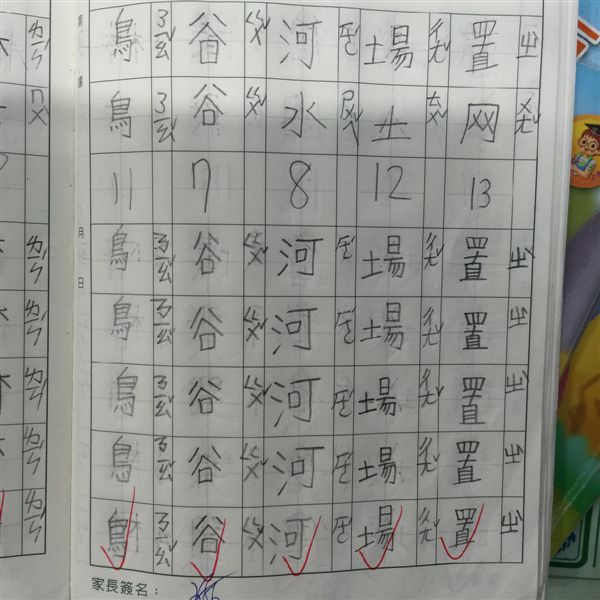 鳥 ㄋㄧㄠˇ 谷 ㄍㄨˇ 河 ㄏㄜˊ 場 ㄔㄤˇ 置 ㄓˋ
鳥 ㄋㄧㄠˇ 谷 ㄍㄨˇ 水 ㄕㄨㄟˇ 土 ㄊㄨˇ 网 ㄨㄤˇ
11 7 8 12 13
鳥 ㄋㄧㄠˇ 谷 ㄍㄨˇ 河 ㄏㄜˊ 場 ㄔㄤˇ 置 ㄓˋ
鳥 ㄋㄧㄠˇ 谷 ㄍㄨˇ 河 ㄏㄜˊ 場 ㄔㄤˇ 置 ㄓˋ
鳥 ㄋㄧㄠˇ 谷 ㄍㄨˇ 河 ㄏㄜˊ 場 ㄔㄤˇ 置 ㄓˋ
鳥 ㄋㄧㄠˇ 谷 ㄍㄨˇ 河 ㄏㄜˊ 場 ㄔㄤˇ 置 ㄓˋ
鳥 ㄋㄧㄠˇ 谷 ㄍㄨˇ 河 ㄏㄜˊ 場 ㄔㄤˇ 置 ㄓˋ
第 課 月 日
家長簽名：